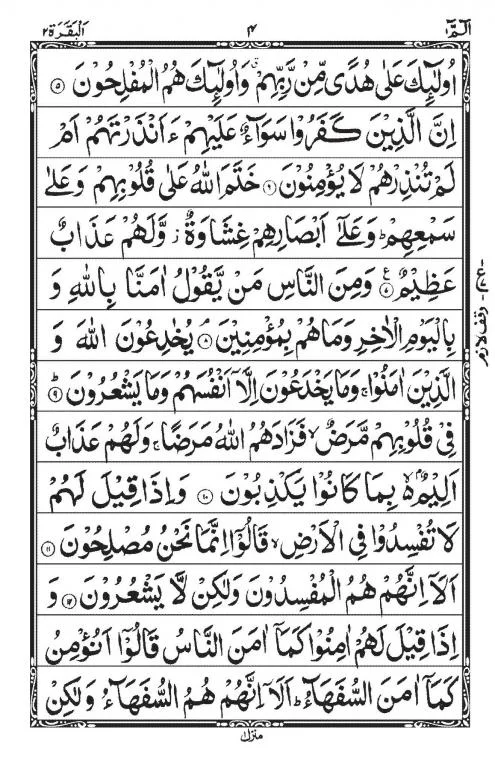 الٓمّٓ ١ ٣ اَلْبَقَرَة ٢
اُولٰٓئِكَ عَلٰى هُدًى مِّنْ رَّبِّهِمْ ۙ وَاُولٰٓئِكَ هُمُ الْمُفْلِحُوْنَ ۝۵
اِنَّ الَّذِيْنَ كَفَرُوْا سَوَآءٌ عَلَيْهِمْ ءَاَنْذَرْتَهُمْ اَمْ
لَمْ تُنْذِرْهُمْ لَا يُؤْمِنُوْنَ ۝۶ خَتَمَ اللّٰهُ عَلٰى قُلُوْبِهِمْ وَعَلٰى
سَمْعِهِمْ ؕ وَعَلٰٓى اَبْصَارِهِمْ غِشَاوَةٌ ز وَّلَهُمْ عَذَابٌ
عَظِيْمٌ ۝۷ ع وَمِنَ النَّاسِ مَنْ يَّقُوْلُ اٰمَنَّا بِاللّٰهِ وَ
بِالْيَوْمِ الْاٰخِرِ وَمَا هُمْ بِمُؤْمِنِيْنَ ۘ ۝۸ يُخٰدِعُوْنَ اللّٰهَ وَ
الَّذِيْنَ اٰمَنُوْا ۚ وَمَا يَخْدَعُوْنَ اِلَّآ اَنْفُسَهُمْ وَمَا يَشْعُرُوْنَ ؕ ۝۹
فِيْ قُلُوْبِهِمْ مَّرَضٌ ۙ فَزَادَهُمُ اللّٰهُ مَرَضًا ۚ وَلَهُمْ عَذَابٌ
اَلِيْمٌۢ ۙ بِمَا كَانُوْا يَكْذِبُوْنَ ۝۱۰ وَاِذَا قِيْلَ لَهُمْ
لَا تُفْسِدُوْا فِي الْاَرْضِ ۙ قَالُوْٓا اِنَّمَا نَحْنُ مُصْلِحُوْنَ ۝۱۱
اَلَآ اِنَّهُمْ هُمُ الْمُفْسِدُوْنَ وَلٰكِنْ لَّا يَشْعُرُوْنَ ۝۱۲ وَ
اِذَا قِيْلَ لَهُمْ اٰمِنُوْا كَمَآ اٰمَنَ النَّاسُ قَالُوْٓا اَنُؤْمِنُ
كَمَآ اٰمَنَ السُّفَهَآءُ ؕ اَلَآ اِنَّهُمْ هُمُ السُّفَهَآءُ وَلٰكِنْ
وقف لازم
منزل